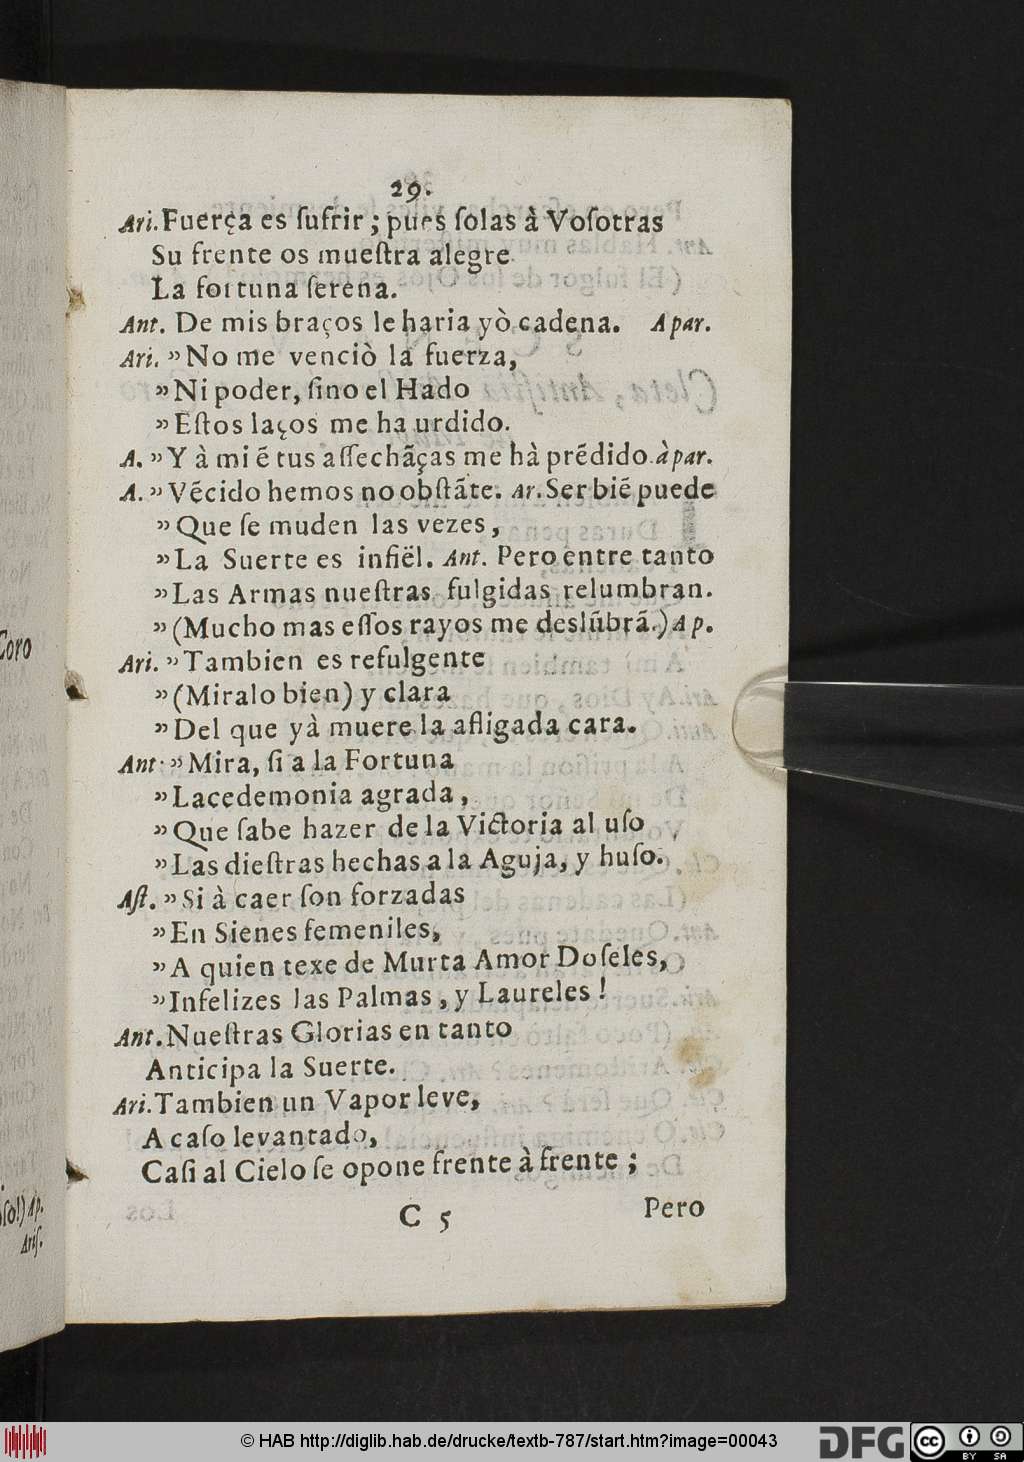 29.
Ari. Fuerça es ſufrir ; pues ſolas à Voſotras
Su frente os mueſtra alegre
La fortuna ſerena.
Ant. De mis braços le haria yò cadena. Apar.
Ari. ”No me venciò la fuerza,
”Ni poder, ſino el Hado
”Eſtos laços me ha urdido.
A. ”Y à mi ẽ tus aſſechãças me hà prẽdido. àpar.
A. ”Vẽcido hemos no obſtãte. Ar. Ser biẽ puede
”Que ſe muden las vezes,
”La Suerte es infiël. Ant. Pero entre tanto
”Las Armas nueſtras fulgidas relumbran.
”(Mucho mas eſſos rayos me deslũbrã.) Ap.
Ari. ”Tambien es refulgente
”(Miralo bien) y clara
”Del que yà muere la afligada cara.
Ant. ”Mira, ſi a la Fortuna
”Lacedemonia agrada,
”Que ſabe hazer de la Victoria al uſo
”Las dieſtras hechas a la Aguja, y huſo.
Aſt. ”Si à caer ſon forzadas
”En Sienes femeniles,
”A quien texe de Murta Amor Doſeles,
”Infelizes las Palmas, y Laureles !
Ant. Nueſtras Glorias en tanto
Anticipa la Suerte.
Ari. Tambien un Vapor leve,
A caſo levantado,
Caſi al Cielo ſe opone frente à frente ;
C 5 Pero
Coro
ſo!) Ap.
Ariſ.
© HAB http://diglib.hab.de/drucke/textb-787/start.htm?image=00043
DFG
cc
BY SA